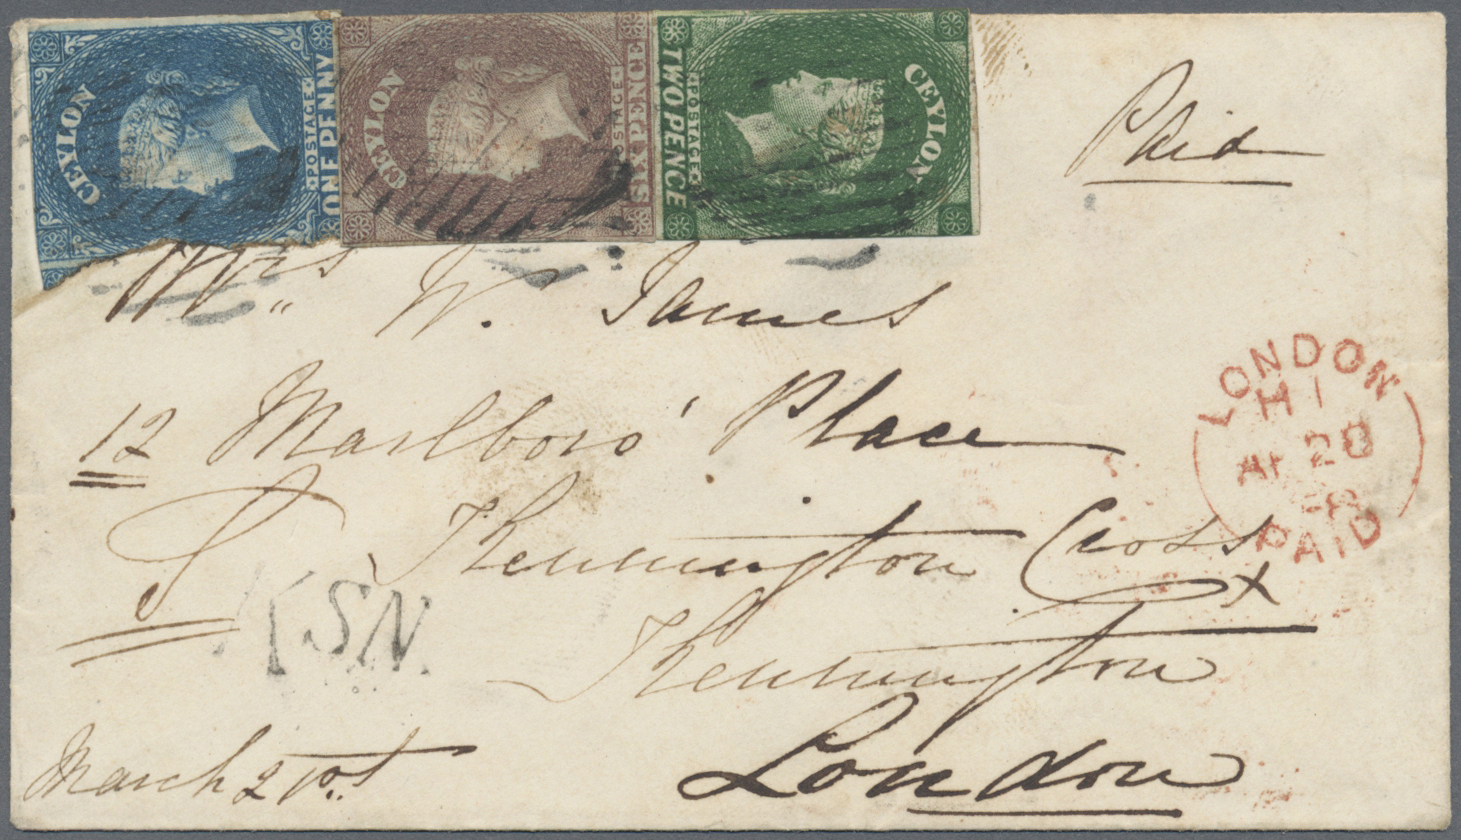 CEYLON POSTAGE ONE PENNY
CEYLON POSTAGE SIX PENCE
CEYLON POSTAGE TWO PENCE
Paid
Mrs W. James
12 Marlboro' Place
Kennington Cross
Kennington
London
March 21st
LONDON
H1
AP 28
PAID